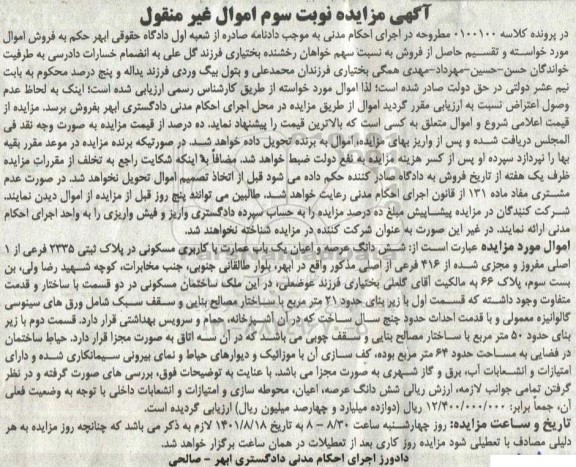 آگهی مزایده نوبت سوم اموال غیر منقول
در پرونده کلاسه ۰۱۰۰۱۰۰ مطروحه در اجرای احکام مدنی به موجب دادنامه صادره از شعبه اول دادگاه حقوقی ابهر حکم به فروش اموال
مورد خواسته و تقسیم حاصل از فروش به نسبت سهم خواهان رخشنده بختیاری فرزند گل علی به انضمام خسارات دادرسی به طرفیت
خواندگان حسن-حسین-مهرداد-مهدی همگی بختیاری فرزندان محمدعلی و بتول بیگ وردی فرزند یداله و پنج درصد محکوم به بابت
نیم عشر دولتی در حق دولت صادر شده است؛ لذا اموال مورد خواسته از طریق کارشناس رسمی ارزیابی شده است؛ اینک به لحاظ عدم
وصول اعتراض نسبت به ارزیابی مقرر گردید اموال از طریق مزایده در محل اجرای احکام مدنی دادگستری ابهر بفروش برسد. مزایده از
قیمت اعلامی شروع و اموال متعلق به کسی است که بالاترین قیمت را پیشنهاد نماید. ده درصد از قیمت مزایده به صورت وجه نقد فی
المجلس دریافت شده و پس از واریز بهای مزایده، اموال به برنده تحویل داده خواهد شد. در صورتیکه برنده مزایده در موعد مقرر بقیه
بها را نپردازد سپرده او پس از کسر هزینه مزایده به نفع دولت ضبط خواهد شد. مضافاً با اینکه شکایت راجع به تخلف از مقررات مزایده
ظرف یک هفته از تاریخ فروش به دادگاه صادر کننده حکم داده می شود قبل از اتخاذ تصمیم اموال تحویل نخواهد شد. در صورت عدم
مشتری مفاد ماده ۱۳۱ از قانون اجرای احکام مدنی رعایت خواهد شد. طالبین می توانند پنج روز قبل از مزایده از اموال دیدن نمایند.
شرکت کنندگان در مزایده پیشاپیش مبلغ ده درصد مزایده را به حساب سپرده دادگستری واریز و فیش واریزی را به واحد اجرای احکام
مدنی ارائه نمایند. در غیر این صورت به عنوان شرکت کننده در مزایده شناخته نخواهند شد.
اموال مورد مزایده عبارت است از: شش دانگ عرصه و اعیان یک باب عمارت با کاربری مسکونی در پلاک ثبتی ۲۳۳۵ فرعی از ۱
اصلی مفروز و مجزی شده از ۴۱۶ فرعی از اصلی مذکور واقع در ابهر، بلوار طالقانی جنوبی، جنب مخابرات، کوچه شهید رضا ولی، بن
بست سوم، پلاک ۶۶ به مالکیت آقای گلعلی بختیاری فرزند عوضعلی، در این ملک ساختمان مسکونی در دو قسمت با ساختار و قدمت
متفاوت وجود داشته که قسمت اول با زیر بنای حدود ۲۱ متر مربع با ساختار مصالح بنایی و سقف سبک شامل ورق های سینوسی
گالوانیزه معمولی و با قدمت احداث حدود پنج سال ساخت که در آن آشپزخانه، حمام و سرویس بهداشتی قرار دارد. قسمت دوم با زیر
بنای حدود ۵۰ متر مربع با ساختار مصالح بنایی و سقف چوبی می باشد که در آن سه اتاق به صورت مجزا قرار دارد. حیاط ساختمان
در فضایی به مساحت حدود ۶۴ متر مربع بوده، کف سازی آن با موزائیک و دیوارهای حیاط و نمای بیرونی سیمانکاری شده و دارای
امتیازات و انشعابات آب، برق و گاز شهری به صورت مجزا می باشد. با عنایت به توضیحات فوق، بررسی های صورت گرفته و در نظر
گرفتن تمامی جوانب لازمه، ارزش ریالی شش دانگ عرصه، اعیان، محوطه سازی و امتیازات و انشعابات داخلی با توجه به وضعیت فعلی
آن، جمعاً برابر: ۱۲/۴۰۰/۰۰۰/۰۰۰ ریال (دوازده میلیارد و چهارصد میلیون ریال) ارزیابی گردیده است.
تاریخ و ساعت مزایده: روز چهارشنبه ساعت ۸/۳۰ - ۸ به تاریخ ۱۴۰۱/۸/۱۸ لازم به ذکر می باشد که چنانچه روز مزایده به هر
دلیلی مصادف با تعطیلی شود مزایده روز کاری بعد از تعطیلات در همان ساعت برگزار خواهد شد.
دادورز اجرای احکام مدنی دادگستری ابهر - صالحی